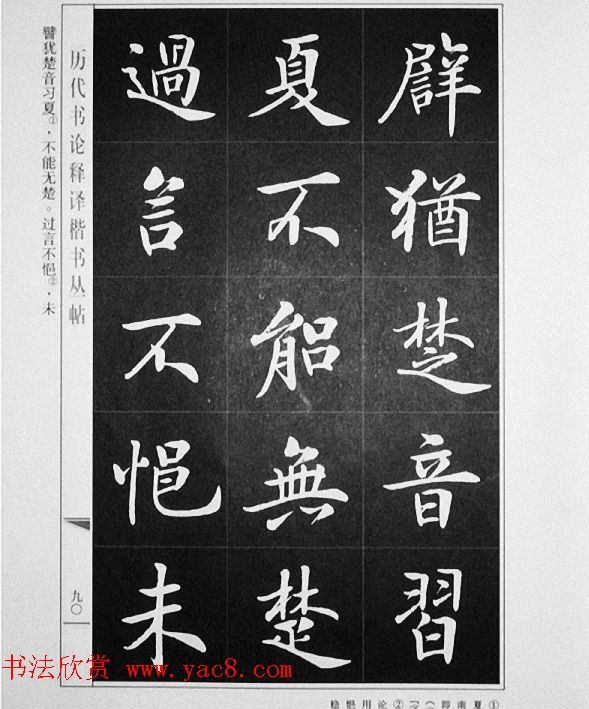 辟猶楚音習
夏不能無楚
過言不悒未
历代书论释译楷书丛帖
九〇
譬犹楚音习夏①，不能无楚。过言不悒②，未
书法欣赏 www.yac8.com